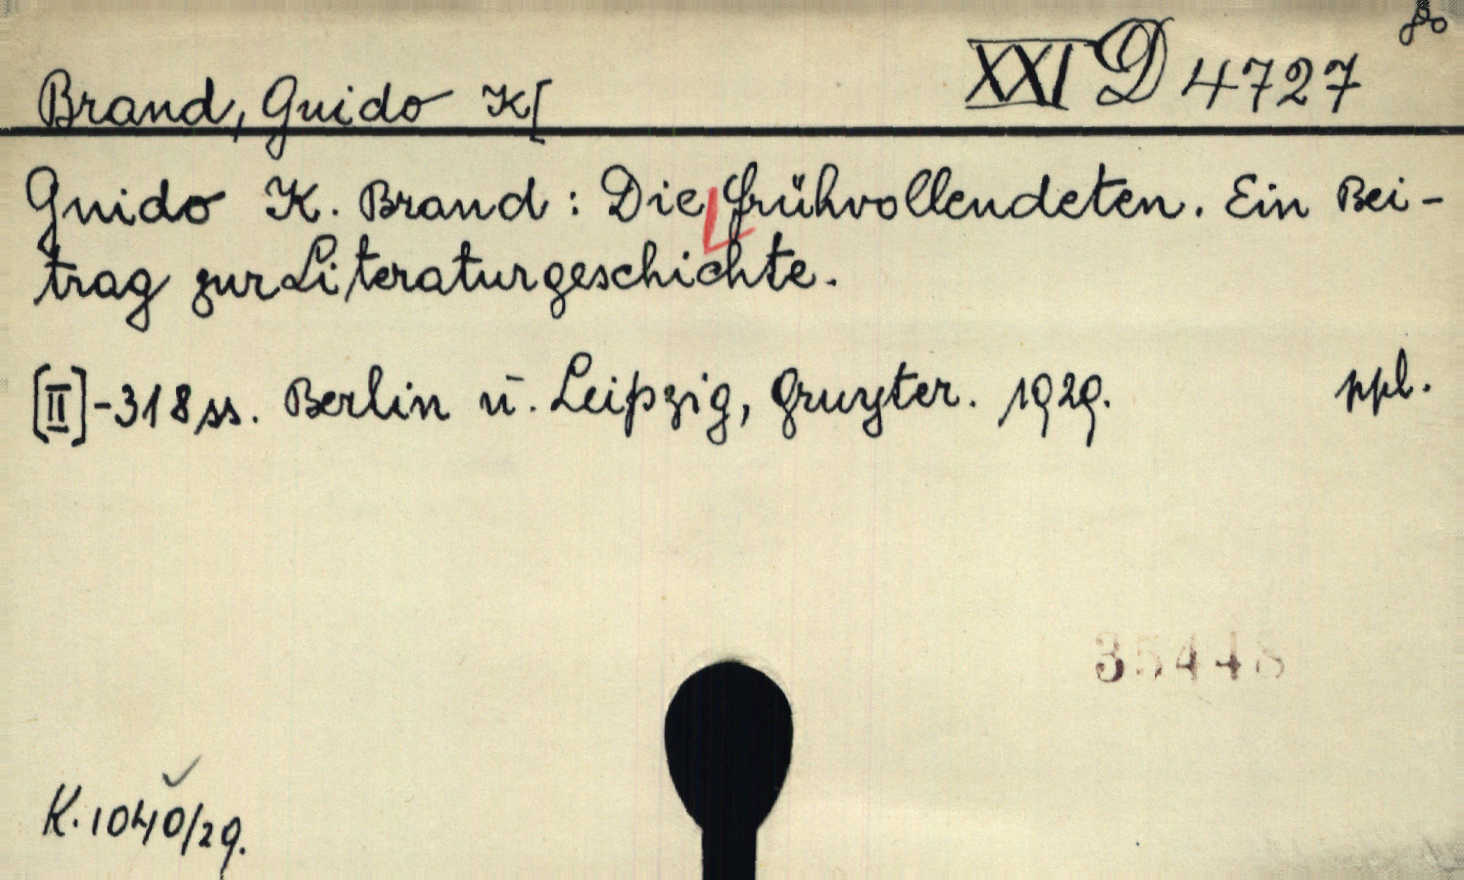 8o
XXI D 4727
Brand, Guido K[
Guido K. Brand: Die frühvollendeten. Ein Bei-
trag zur Literaturgeschichte.
[II]-318 ss. Berlin u. Leipzig, Gruyter. 1929. ppl.
35448
K. 1040/29.